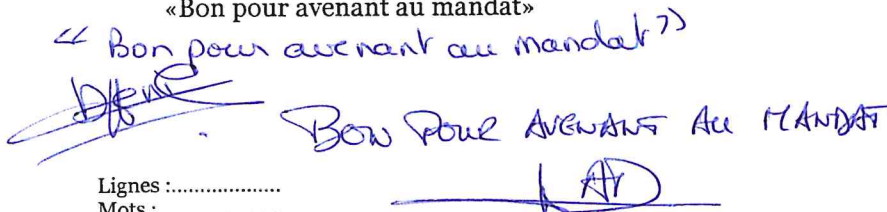 «Bon pour avenant au mandat»
“ Bon pour avenant au mandat ”
BON POUR AVENANT AU MANDAT
Lignes :...................
Mots :